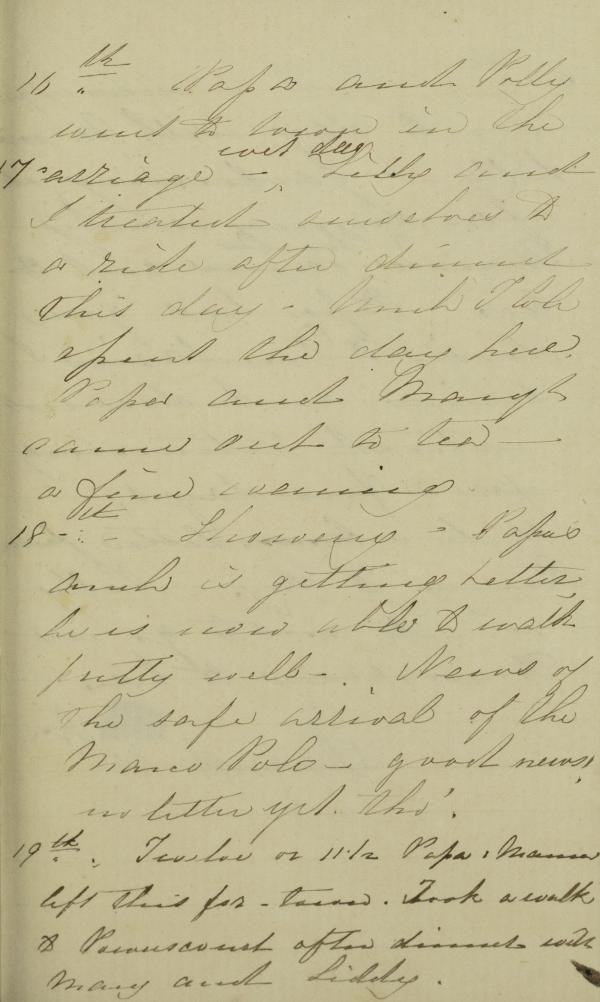 16th Papa and Polly
went to town in the
wet day
17 carriage - Lilly and
I treated ourselves to
a ride after dinner
this day - Unch
spent the day here.
Papa and Mary
came out to tea -
a fine evening
18th - Showery - Papa's
ancle is getting better,
he is now able to walk
pretty well - News of
the safe arrival of the
Marco Polo - good news!
no letter yet. tho'.
19th. Twelve or 11 1/2 Papa & Mama
left this for - town. Took a walk
to Powerscourt after dinner with
Mary and Liddy.